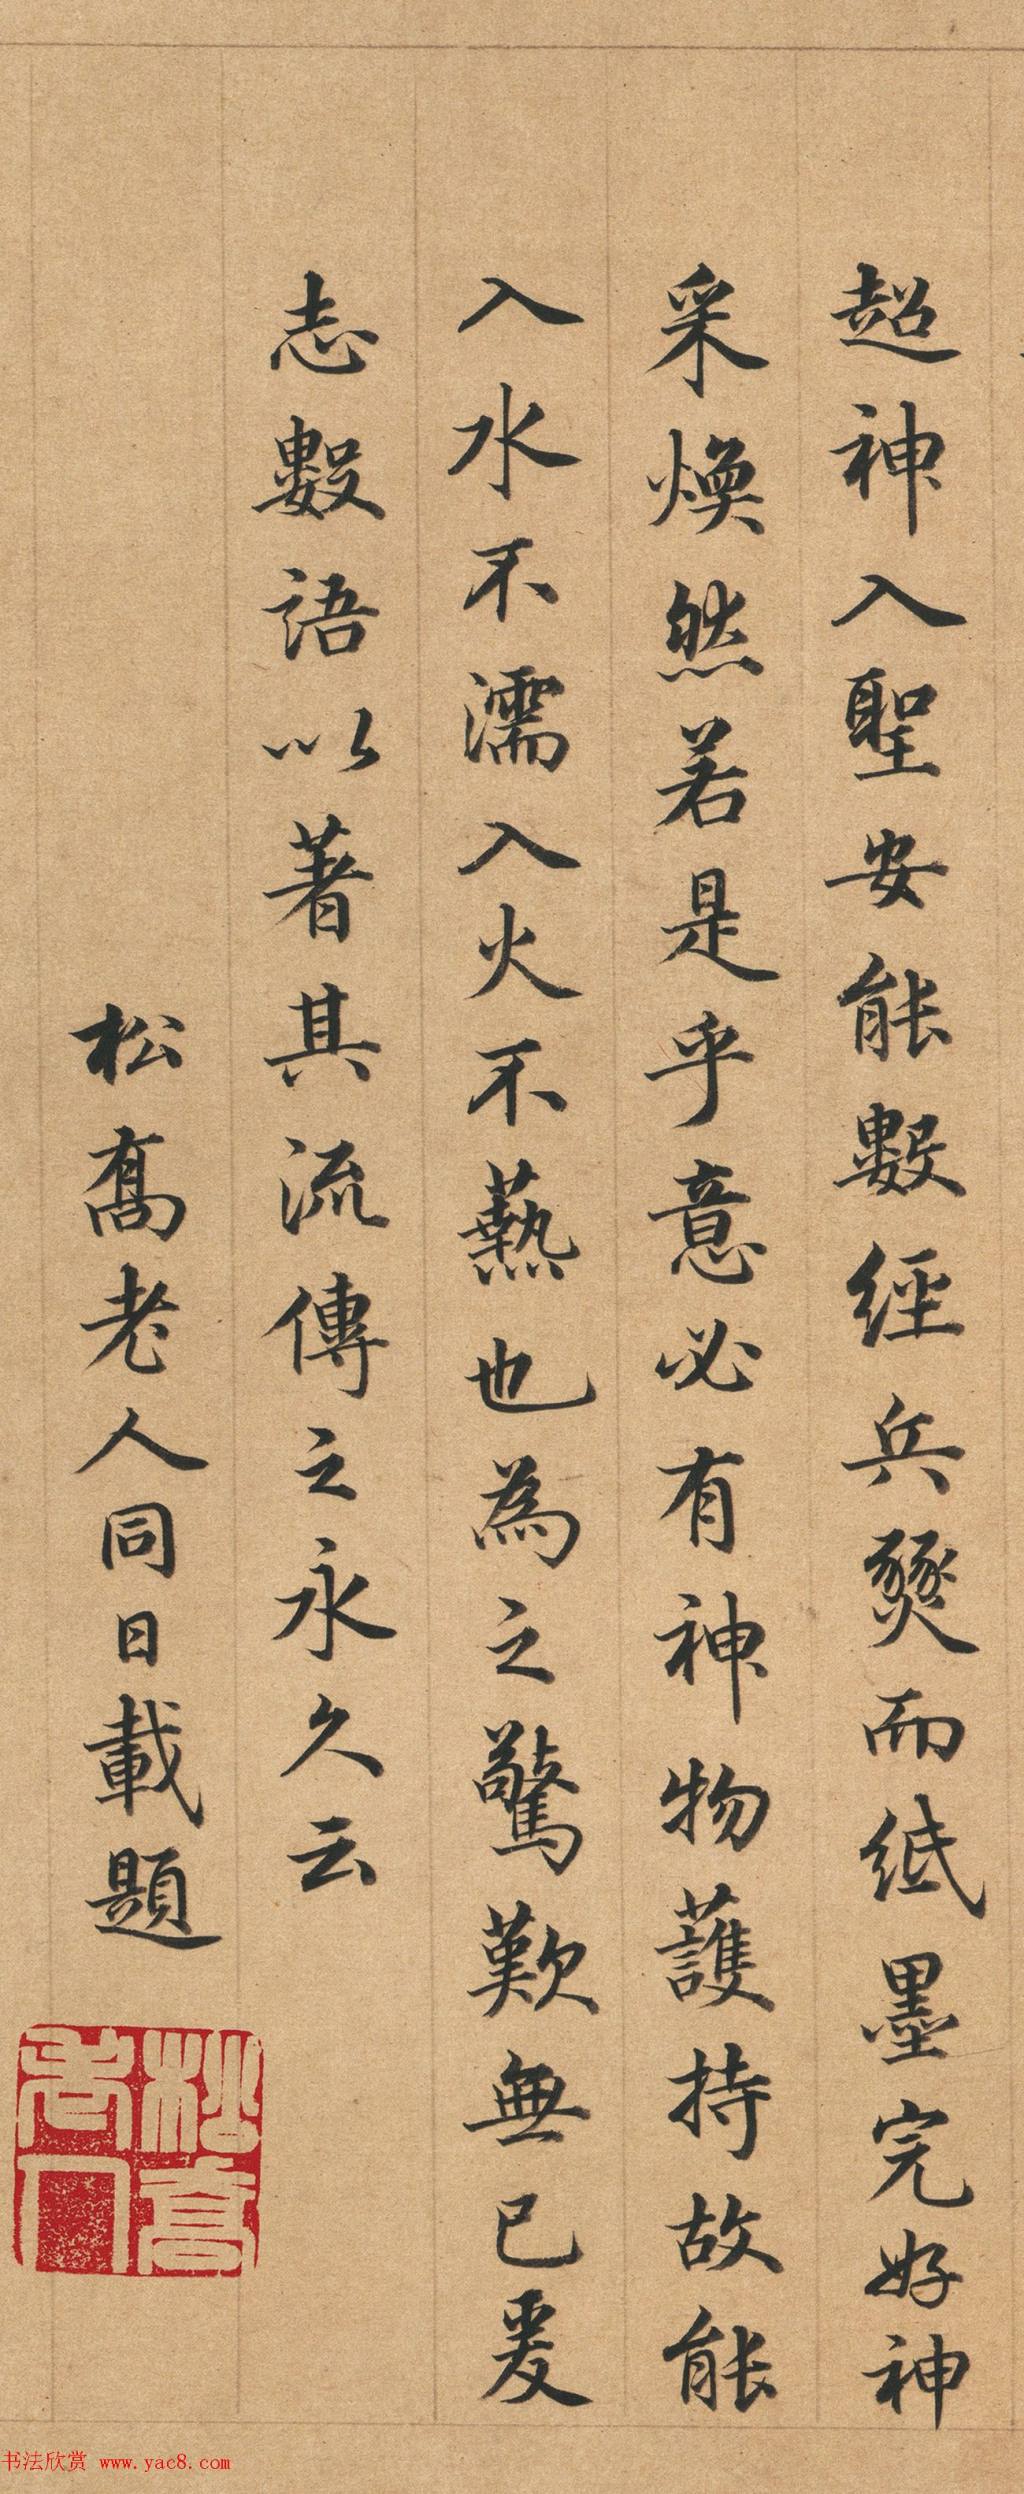 超神入聖安能數經兵燹而紙墨完好神
采煥然若是乎意必有神物護持故能
入水不濡入火不爇也為之驚歎無已爰
志數語以著其流傳之永久云
松喬老人同日載題
松喬老人
书法欣赏 www.yac8.com